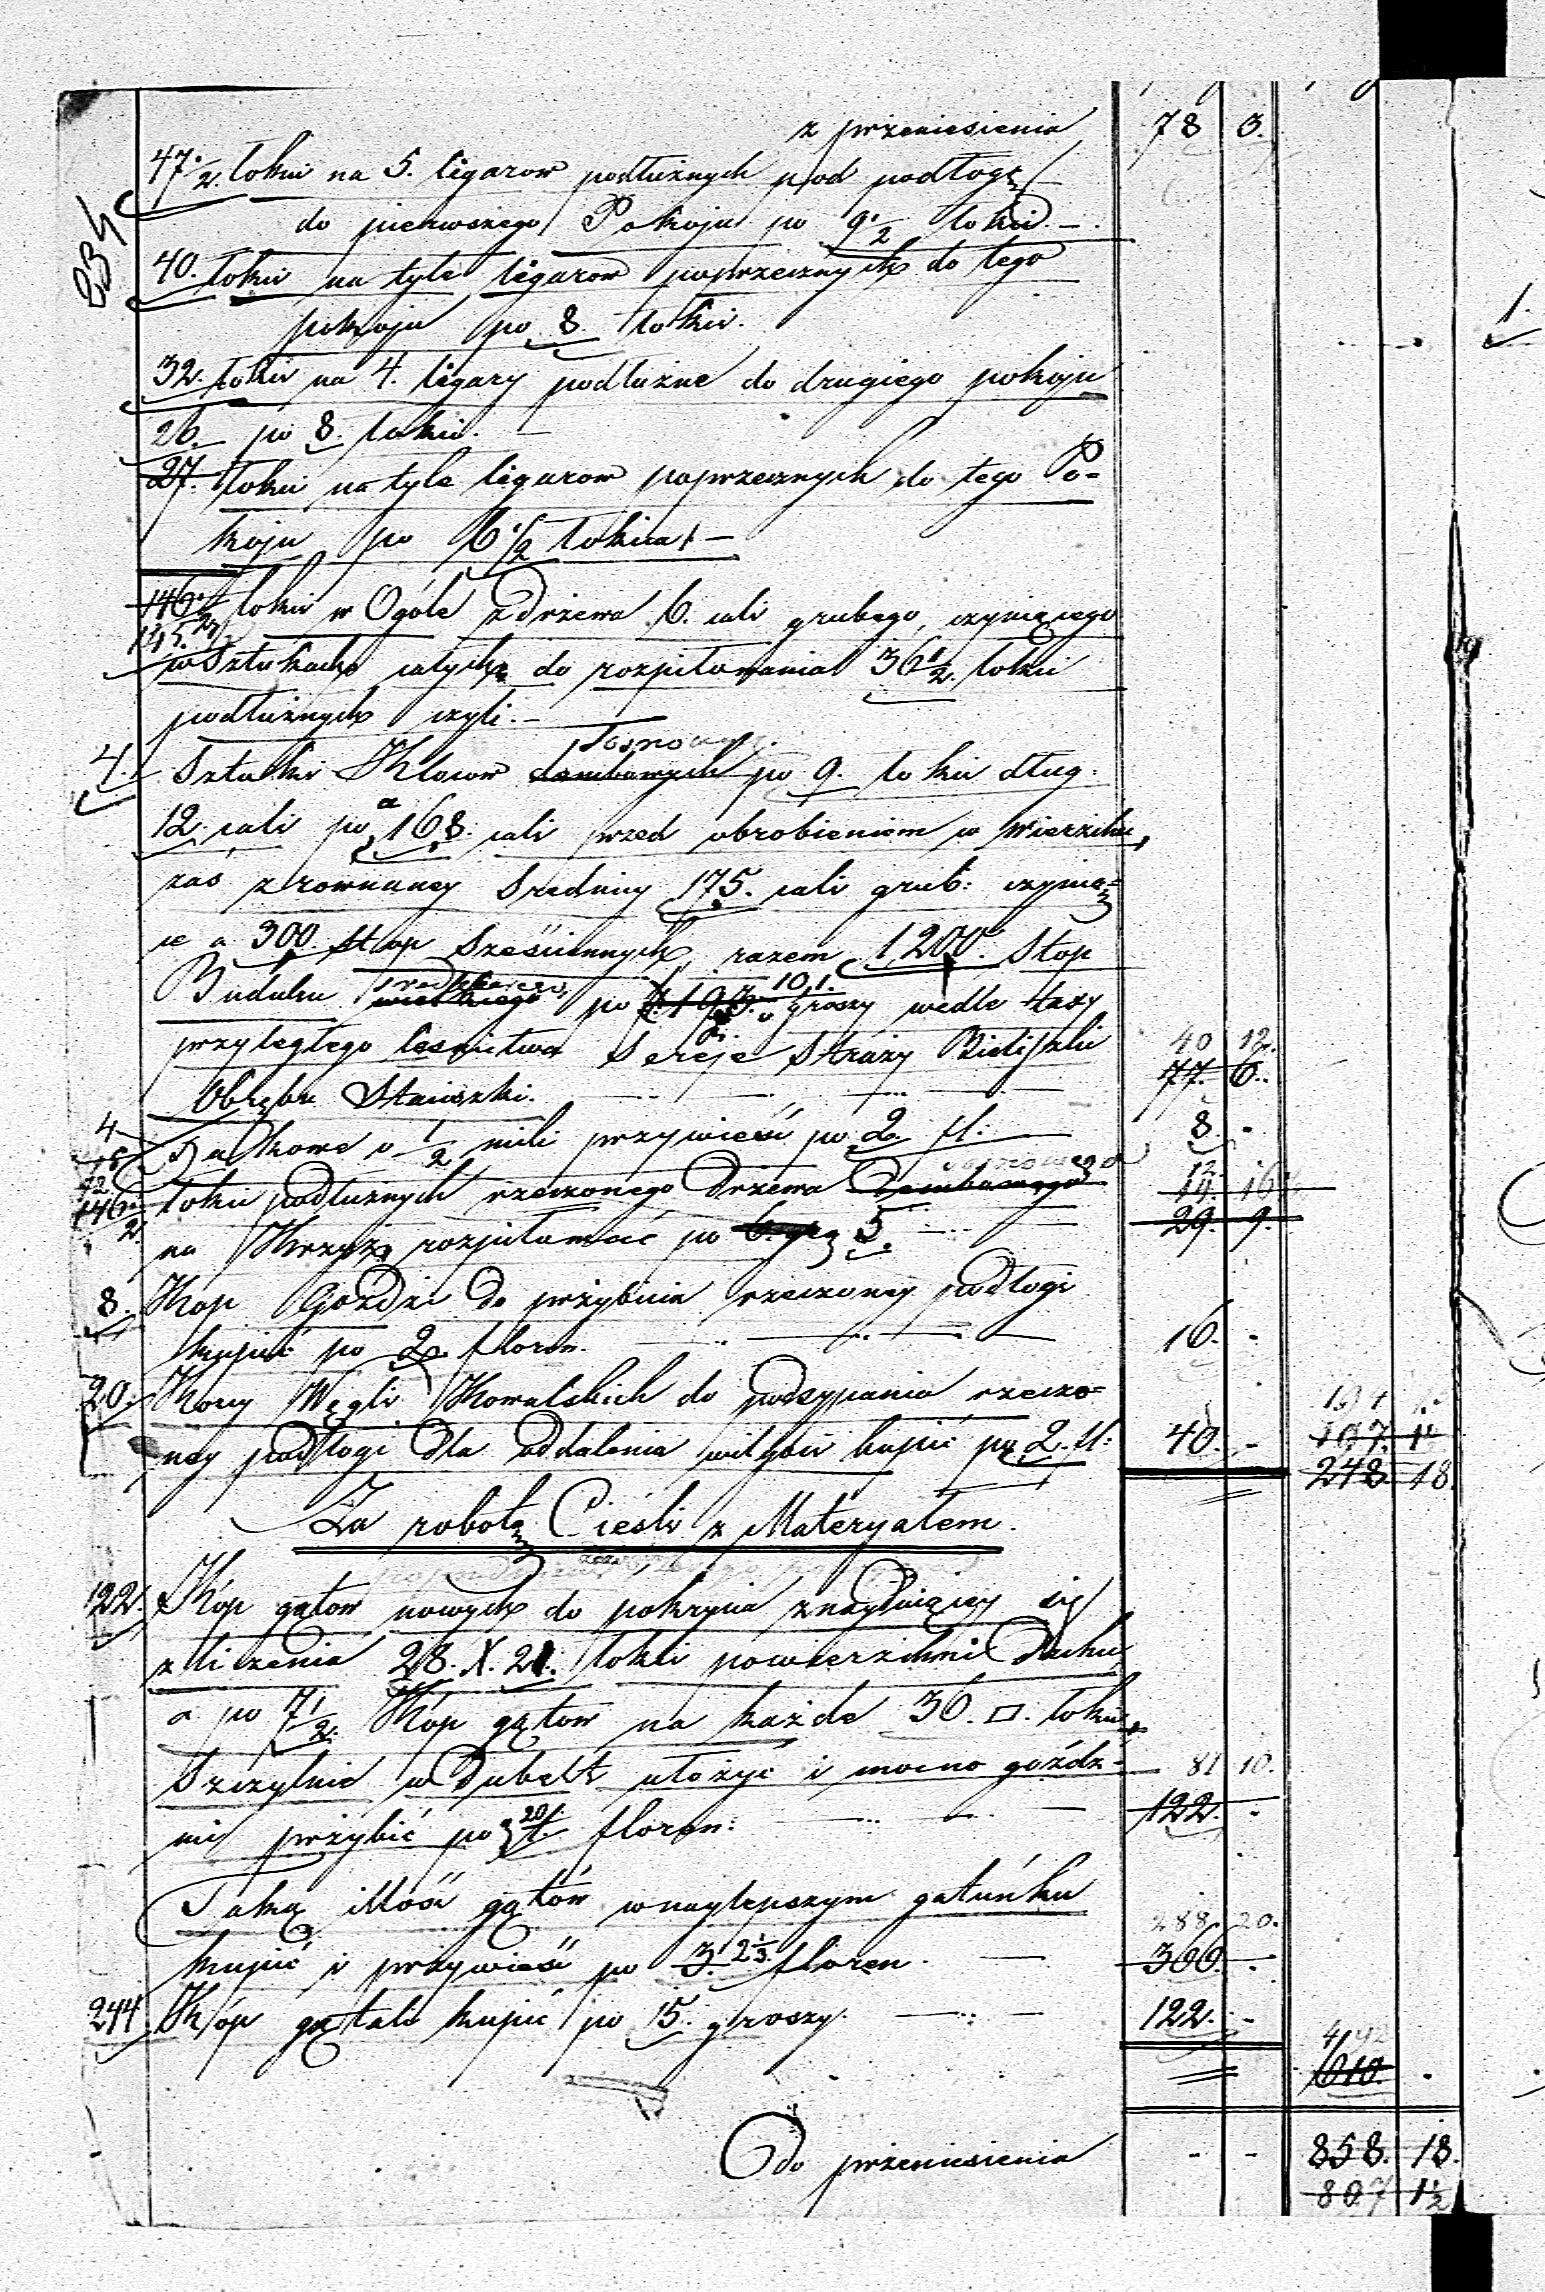 z przeniesienia 78 3.
834
47 1/2. łokci na 5. ligarow podłużnych pod podłogę
do pierwszego Pokoju po 9 1/2 łokci. -
40. łokci na tyle ligarow poprzecznych do tego
pokoju po 8. łokci.
32. łokci na 4. ligary podłużne do drugiego pokoju
26. po 8. łokci. -
27. łokci na tyle ligarow poprzecznych do tego Po-
koju po 6 1/2 łokcia. -
146 1/2 łokci w Ogóle z drzewa 6. cali grubego, czyniącego
145. 1/2
w Sztukach całych do rozpiłowania 36 1/2. łokci
podłużnych czyli. -
4. Sztuki Klocow dembowych Sosnowych po 9. łokci dług.
12. cali po a 168. cali przed obrobieniem w Wierzchu,
zaś z rownaney Srednicy 175. cali grub: czynią-
ce a 300. Stop Sześciennych, razem 1200. Stop
Budulcu po 10 1. groszy wedle taxy
przyległego leśnictwa Sereje Straży 40 12.
Obrębu Staiszki. 77. 6.
4 Takowe o 1/2 mili przywieść po 2 fl. 8. -
146 1/2 łokci podłużnych rzeczonego Drzewa Dembowego Sosnowego 12. 16
na Krzyż rozpiłować po 6 gr 5. 29. 9.
8. Kop Goździ do przybicia rzeczoney podłogi
kupić po 2. floren. 16. -
20. Korcy Węgli Kowalskich do podsypania rzeczo-
ney podłogi dla oddalenia wilgoci kupić po 2. fl: 40. -
248. 18.
Za robotę Cieśli z Materyałem.
122. Kóp gątow nowych do pokrycia znayduiącey się
z liczenia 28. X. 21. łokci powierzchni Dachu
a po 7 1/2. Kóp gątow na każde 36. □. łokci,
Szczylnie w Dubelt ułożyć i mocno goźdz- 81 10.
mi przybić po 20 1. floren: 122. -
Taką ilość gątów w naylepszym gatunku 288 20.
kupić i przywieść po 3. 2 1/3. floren. 366. -
244. Kóp gątali kupić po 15. groszy. 122. -
610. -
Do przeniesienia - - 858. 18.
807 1 1/2